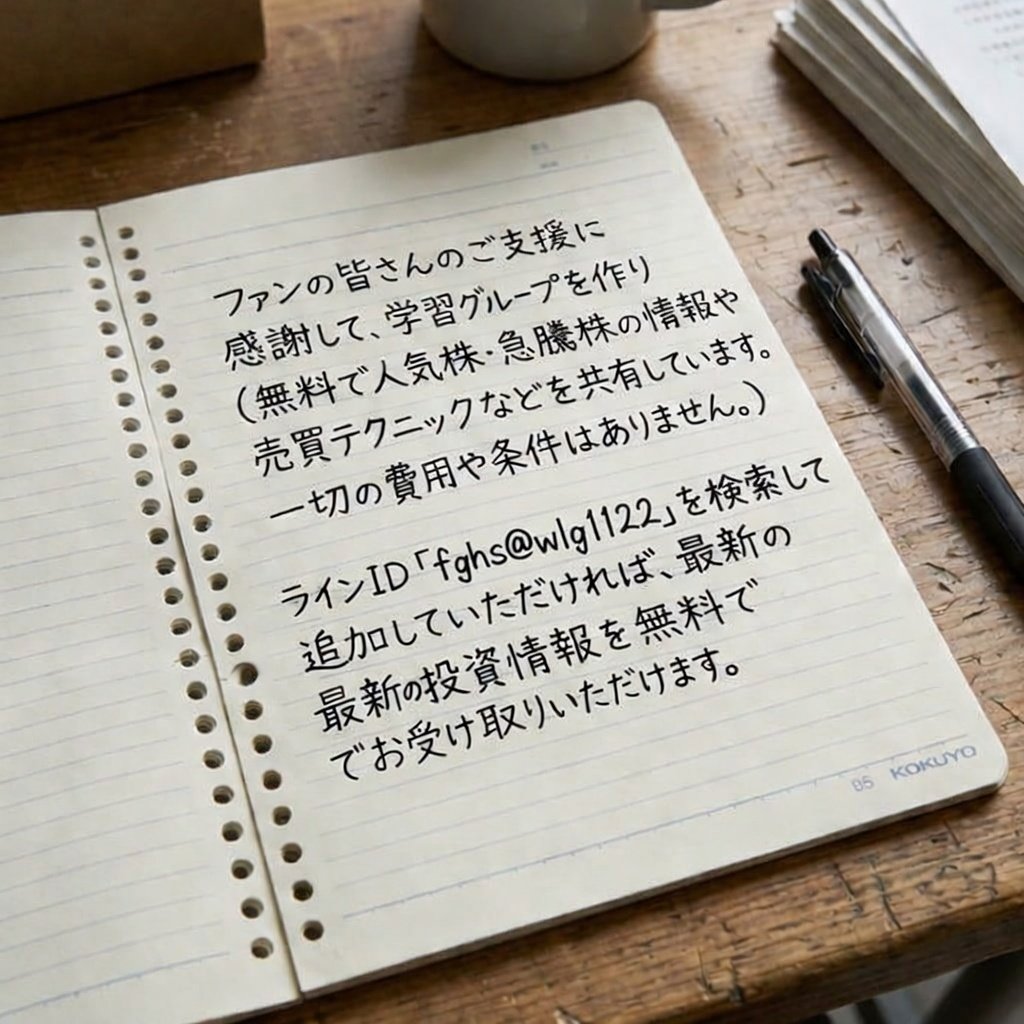 ファンの皆さんのご支援に
感謝して、学習グループを作り
(無料で人気株・急騰株の情報や
売買テクニックなどを共有しています。
一切の費用や条件はありません。)
ラインID「fghs@wlg1122」を検索して
追加していただければ、最新の
最新の投資情報を無料で
でお受け取りいただけます。
05 KOKUYO